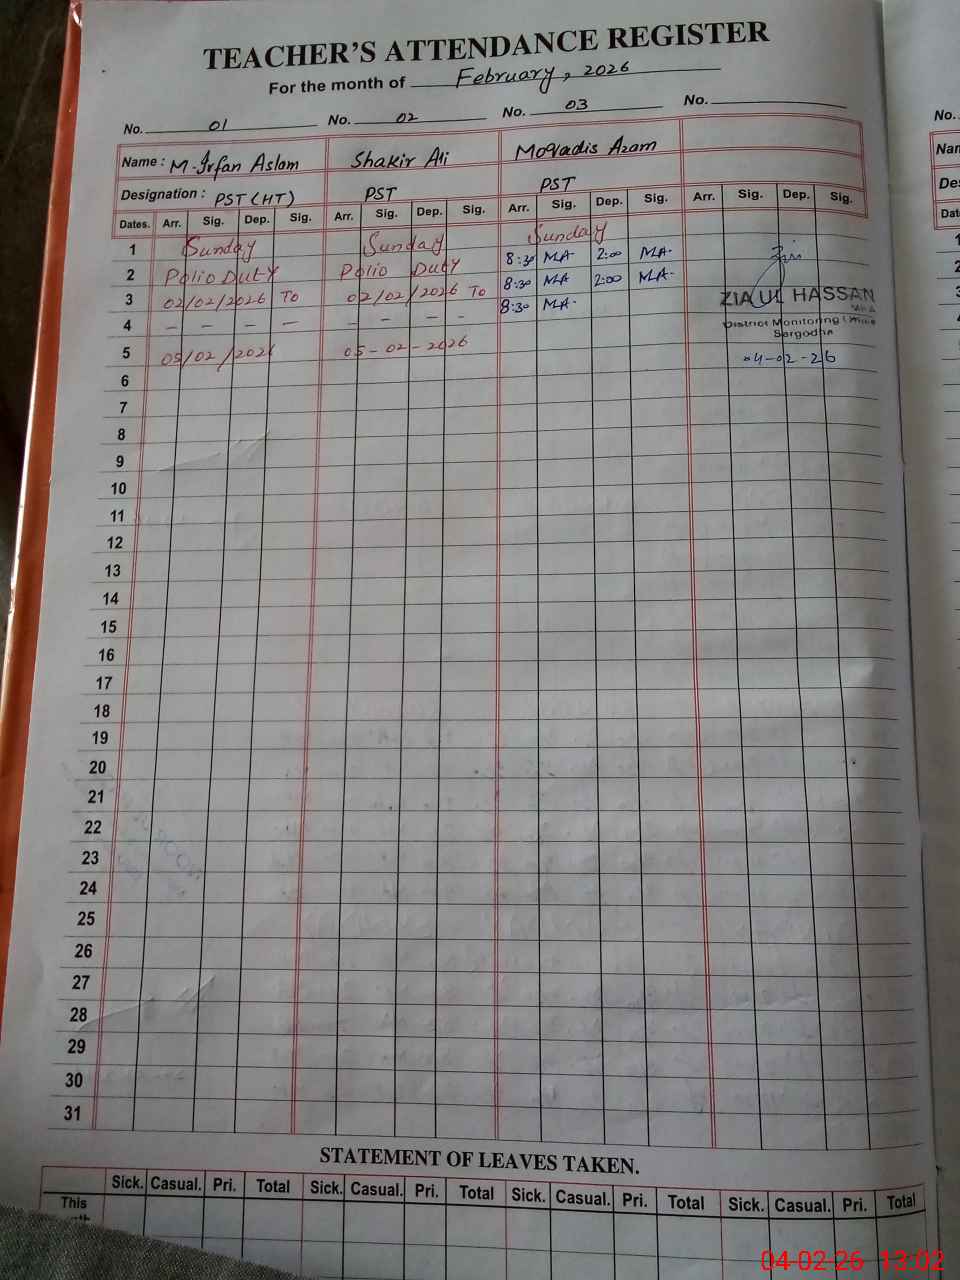 TEACHER'S ATTENDANCE REGISTER
For the month of February, 2026
No. 01 No. 02 No. 03 No.
Name : M. Irfan Aslam Shakir Ali Moqadis Azam
Designation : PST (HT) PST PST
Dates. Arr. Sig. Dep. Sig. Arr. Sig. Dep. Sig. Arr. Sig. Dep. Sig. Arr. Sig. Dep. Sig.
1 Sunday Sunday Sunday
2 Polio Duty Polio Duty 8:30 MA 2:00 MA
3 02/02/2026 To 02/02/2026 To 8:30 MA 2:00 MA
4 - - - - - - - - 8:30 MA
5 05/02/2026 05-02-2026
ZIA UL HASSAN
District Monitoring Officer
Sargodha
04-02-26
6
7
8
9
10
11
12
13
14
15
16
17
18
19
20
21
22
23
24
25
26
27
28
29
30
31
STATEMENT OF LEAVES TAKEN.
Sick. Casual. Pri. Total Sick. Casual. Pri. Total Sick. Casual. Pri. Total Sick. Casual. Pri. Total
This
No.
04-02-26 13:02